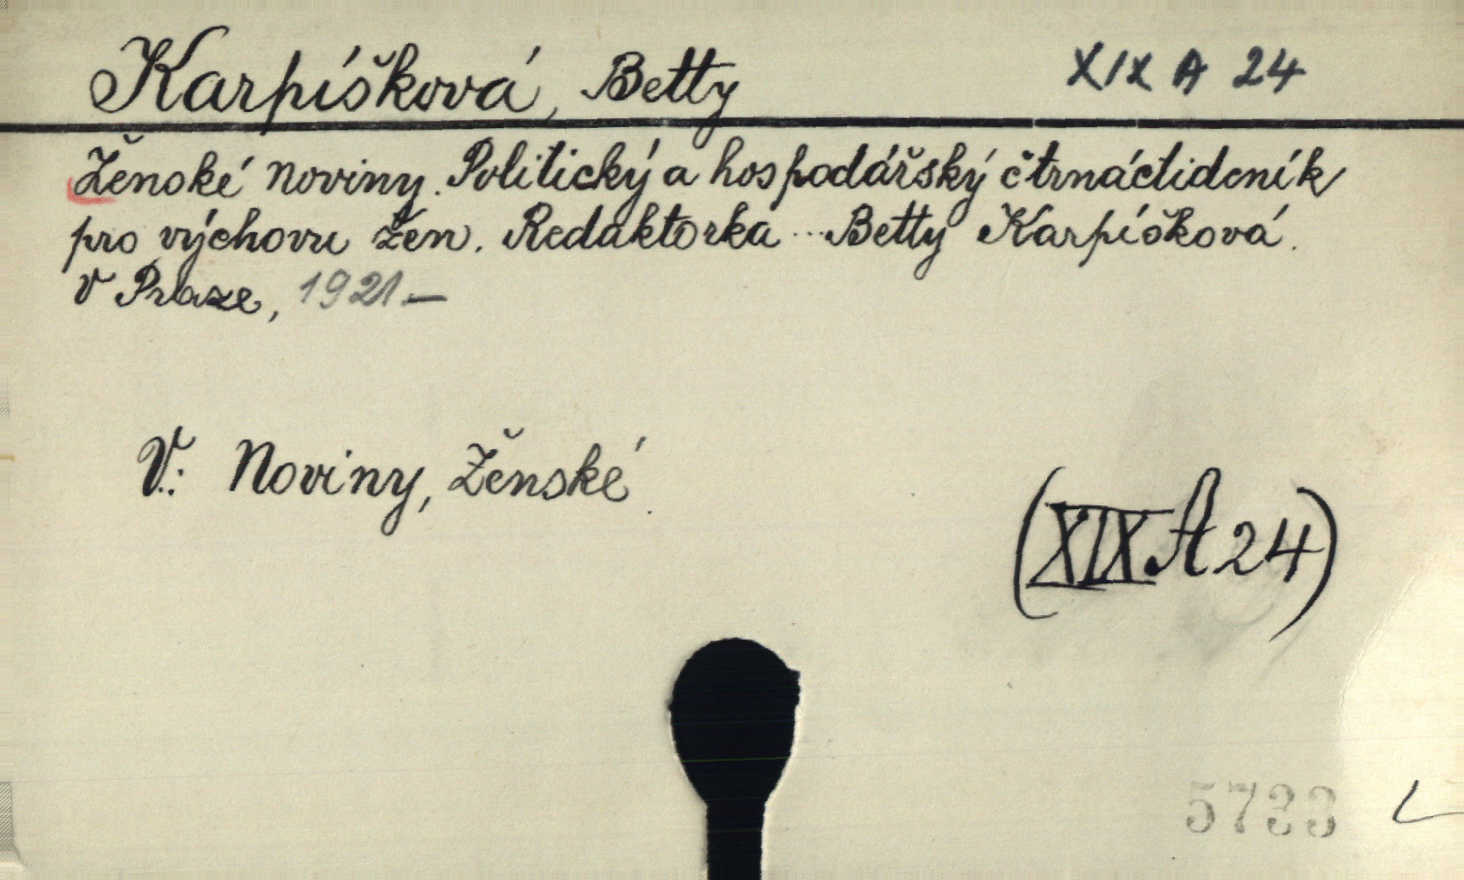 Karpíšková, Betty XIX A 24
Ženské noviny. Politický a hospodářský čtrnáctideník
pro výchovu žen. Redaktorka ... Betty Karpíšková.
V Praze, 1921 —
V.: Noviny, Ženské.
(XIX A 24)
5733